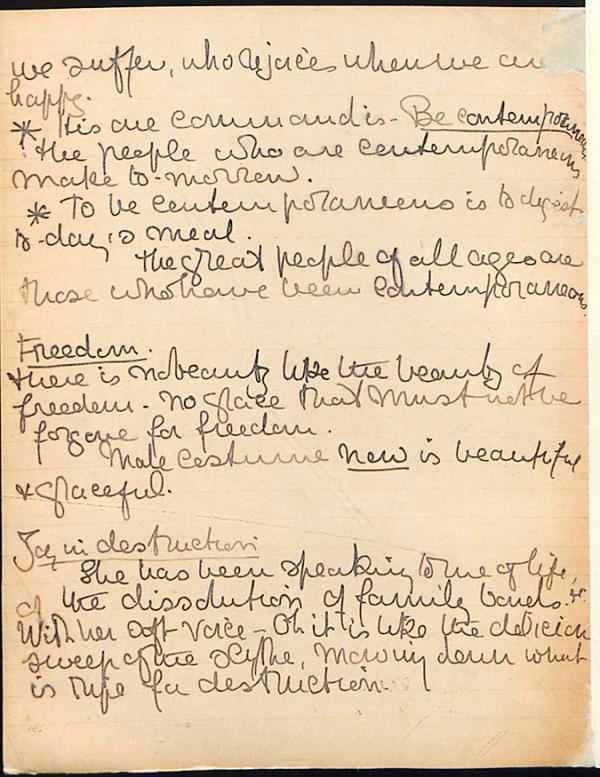 we suffer, who rejoices when we are
happy.
* His one command is - Be contemporaneous
: the people who are contemporaneous
make to-morrow.
* To be contemporaneous is to digest
to-day's meal.
The great people of all ages are
those who have been contemporaneous.
Freedom.
there is no beauty like the beauty of
freedom - no grace that must not be
forgone for freedom.
Male costume now is beautiful
& graceful.
Joy in destruction
She has been speaking to me of life,
of the dissolution of family bonds.
With her soft voice - Oh it is like the
sweep of the scythe, mowing down what
is ripe for destruction.